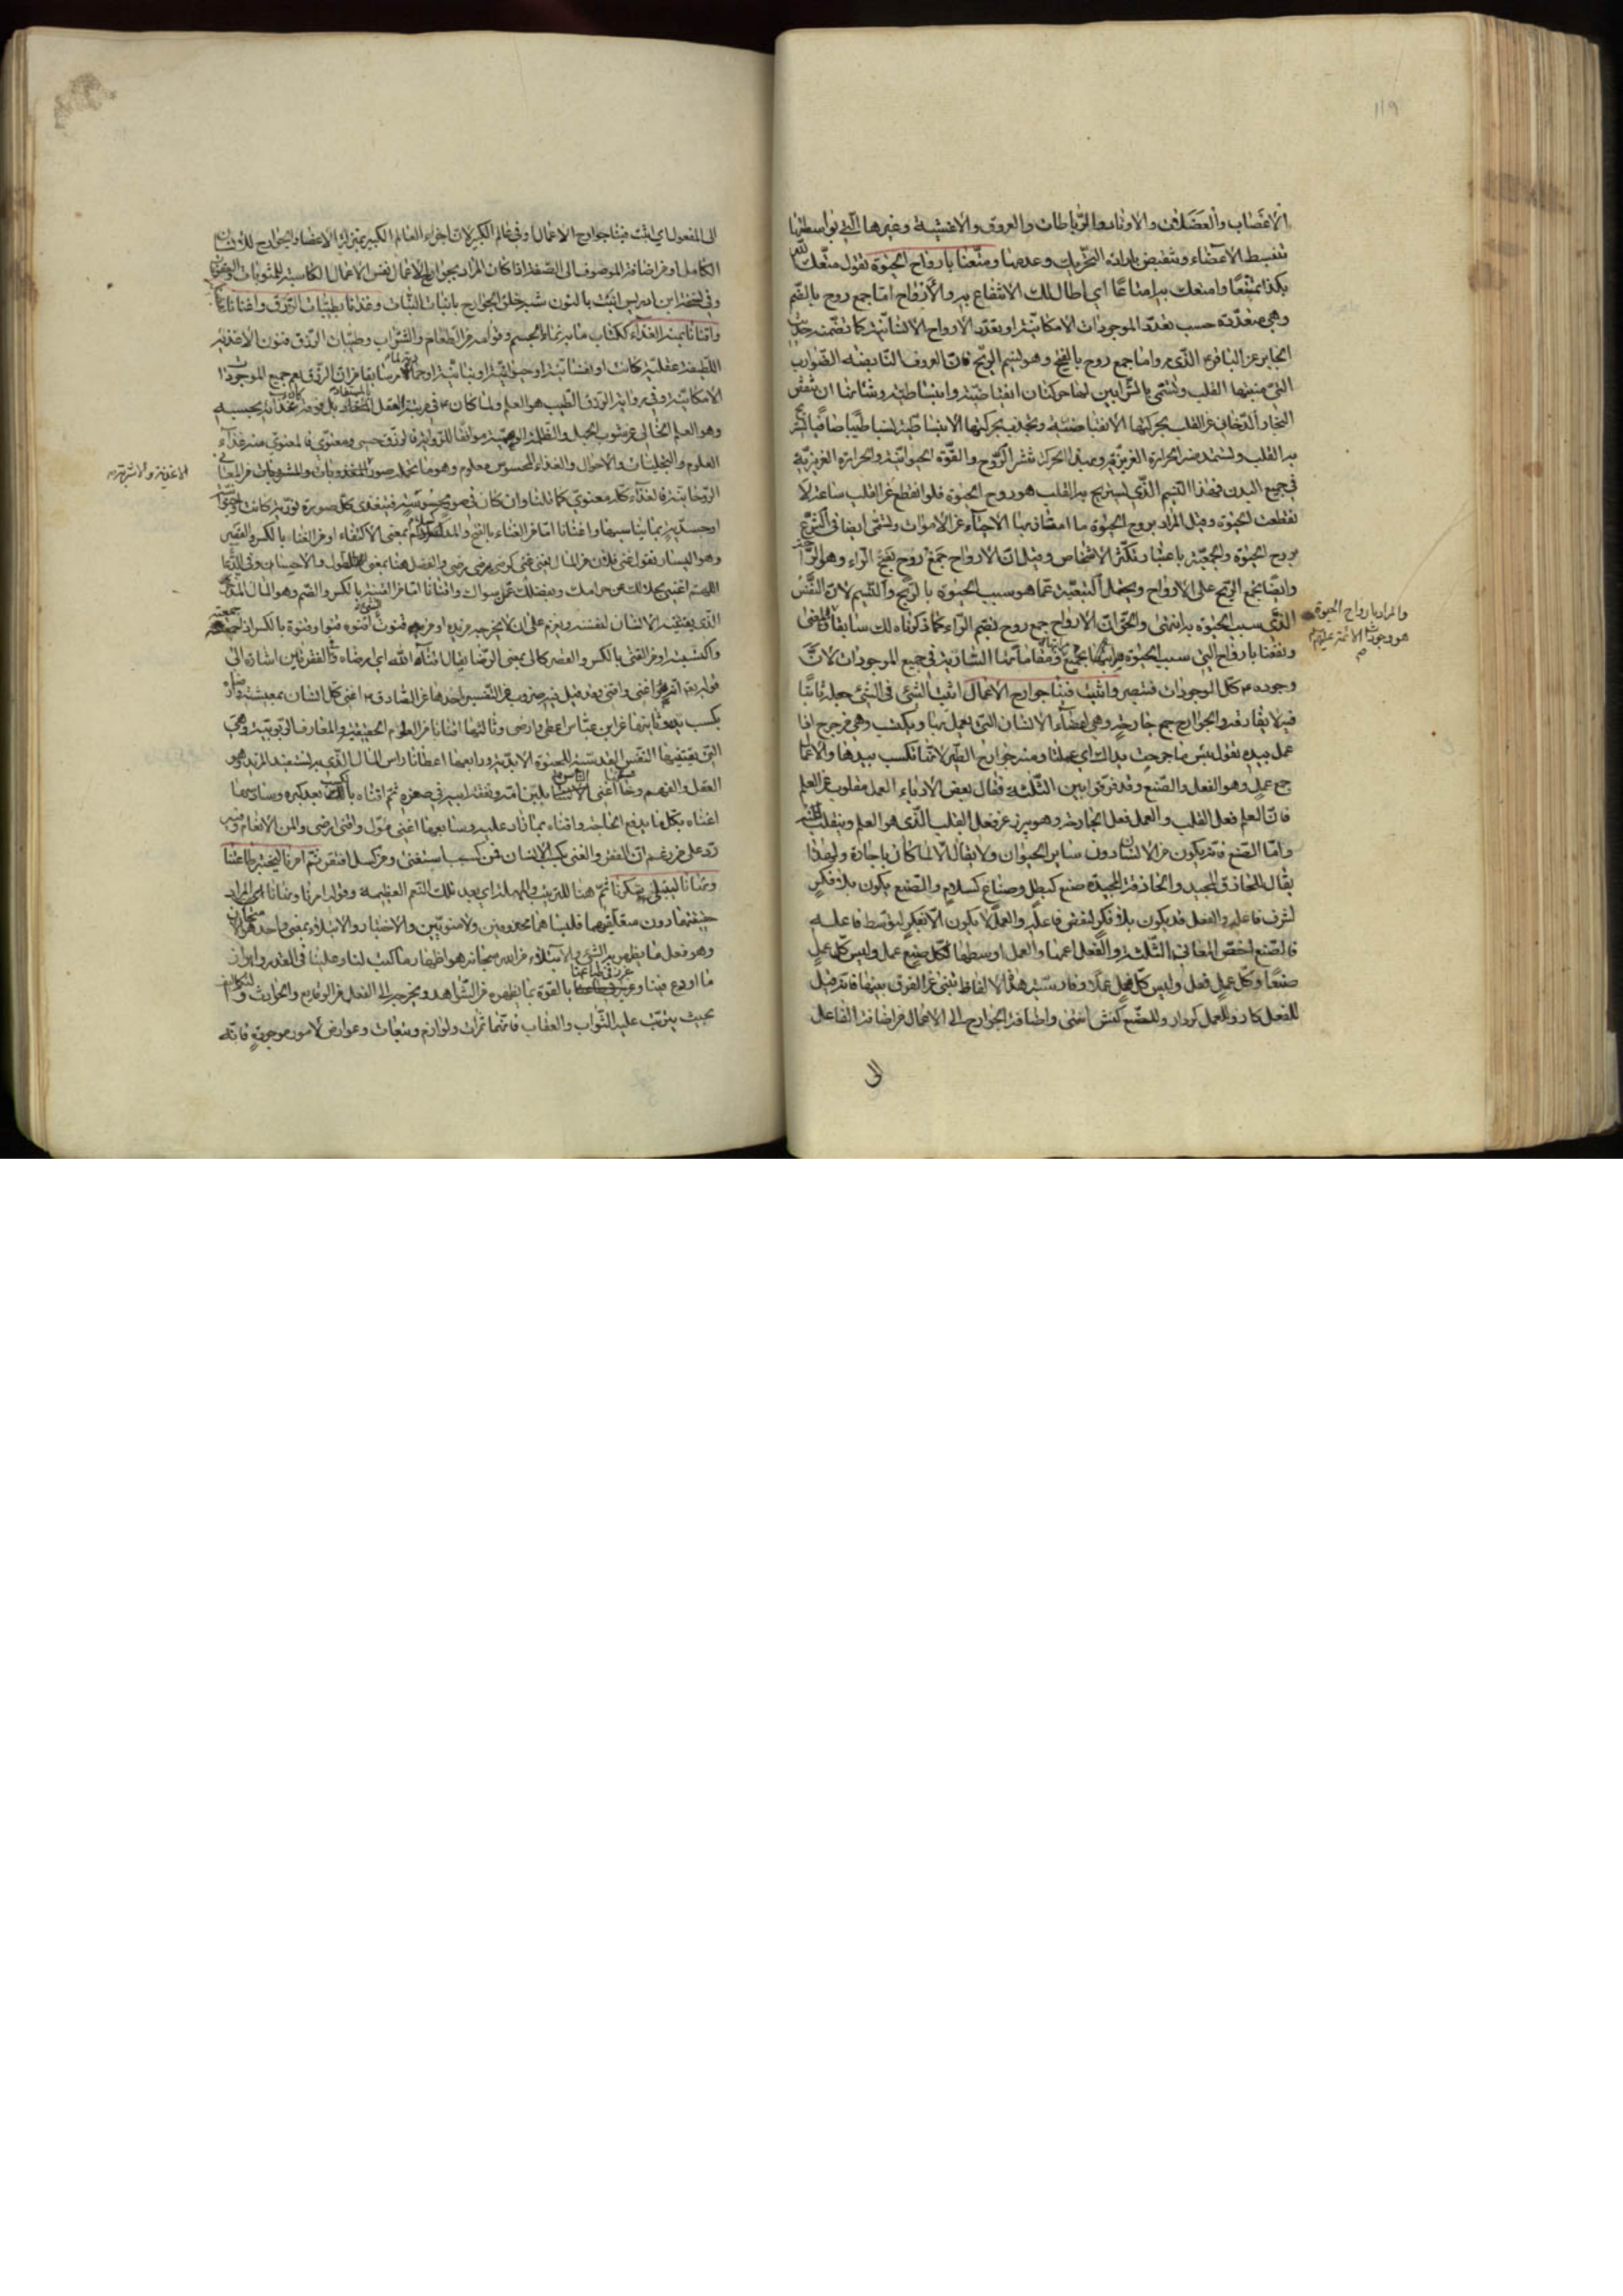 ١١٩
الاعصاب والعضلات والاوتاد والرباطات والعروق والاغشية وغيرها التي بواسطتها
تنبسط الاعضاء وتنقبض بارادة التحريك وعدمها ومتّعنا بارواح الحيوة تقول متّعك الله
بكذا تمتيعًا وامتعك به امتاعًا اي اطال لك الانتفاع به والارواح امّا جمع روح بالضّم
وهي متعدّدة حسب تعدّد الموجودات الامكانيّة او بتعدّد الارواح الانسانيّة كما تضمّنه حديث
الجابر عن الباقر ع الذي مر وامّا جمع روح بالفتح وهو نسيم الريح فان العروق النابضه الضوارب
التي منبتها القلب وتسمّى بالشرايين لها حركتان انقباضيّة وانبساطيّة وشانها ان تنفض
البخار الدّخاني عن القلب بحركتها الانقباضيّة وتجذب بحركتها الانبساطيّة نسيما طيّبا صافيا
به القلب وتستمد منه الحرارة الغريزيّة وبهذه الحركة تنشر الروح والقوّة الحيوانيّة والحرارة الغريزيّة
في جميع البدن فهذا النسيم الذي يستريح به القلب هو روح الحيوة فلو انقطع عن القلب ساعة لا
نقطعت الحيوة وقيل المراد بروح الحيوة ما امتاز بها الاحياء عن الاموات وتسمّى ايضا في الشرع
بروح الحيوة والجمعيّة باعتبار تكثّر الاشخاص وقيل ان الارواح جمع روح بفتح الراء وهو الراحة
وايضا يجمع الريح على الارواح ويحتمل التبعيّة عمّا هو سبب الحيوة بالريح والنسيم لان النّفس
الذي سبب الحيوة به انتهى والحق ان الارواح جمع روح بضم الراء كما ذكرناه لك سابقا والمعنى
والمراد بارواح الحيوة
هو وجودات الائمة عليهم م
ونفعنا بارواح التي سبب الحيوة بجميع ومقاماتها السارية في جميع الموجودات لانّ
وجوده ع كل الموجودات فتبصر واثبت فينا جوارح الاعمال اثبت الشئ في الشئ جعله ثابتا
فيه لا يفارقه والجوارح جمع جارحة وهي اعضاء الانسان التي يعمل بها ويكتسب وهي من جرح اذا
عمل بيده تقول بئس ما جرحت يداك اي عملتا ومنه جوارح الطير لانها تكسب بيدها والاعمال
جمع عمل وهو الفعل والصنع وقد فرقوا بين الثلثة فقال بعض الادباء العمل مقلوب عن العلم
فان العلم فعل القلب والعمل فعل الجارحة وهو يبرز عن فعل القلب الذي هو العلم وينقلب عنه
وامّا الصنع فانه يكون من الانسان دون ساير الحيوان ولا يقال الا لما كان باجادة ولهذا
يقال للحاذق المجيد والحاذقة المجيدة صنع كبطل وصناع كسلام والصنع يكون بلا فكر
لشرف فاعله والفعل قد يكون بلا فكر لنقص فاعله والعمل لا يكون الا بفكر لتوسّط فاعله
فالصنع اخصّ المعاني الثلثة والفعل اعمها والعمل اوسطها فكل صنع عمل وليس كل عمل
صنعًا وكل عمل فعل وليس كل فعل عملا وفارسيّة هذه الالفاظ تنبئ عن الفرق بينها فانه قيل
للفعل كار وللعمل كردار وللصنع كنش انتهى واضافة الجوارح الى الاعمال من اضافة الفاعل
الى
الى المفعول اي اثبت فينا جوارح الاعمال وفي عالم الكبير لان اجزاء العالم الكبير بمنزلة الاعضاء والجوارح للانسان
الكامل او من اضافة الموصوف الى الصّفة اذا كان المراد بجوارح الاعمال نفس الاعمال الكاسبة للمثوبات
وفي نسخة ابن ادريس انبت بالنون شبه خلق الجوارح بانبات النّبات وغذانا بطيّبات الرّزق واغنانا بفضله
واقنانا بمنه الغذاء ككتاب ما به نماء الجسم وقوامه من الطعام والشراب وطيّبات الرّزق فنون الاغذية
اللطيفة عقليّة كانت او نفسانيّة او حيوانيّة او نباتيّة سابقا من ان الرزق يعم جميع الموجودات
الامكانيّة وفي رواية الرزق الطّيب هو العلم ولما كان
وهو العلم الخالي عن شوب الجهل والظلمة الوهميّة موافقا للرواية فالرزق حسي ومعنوي فالمعنوي منه غذاء
العلوم والتجليات والاحوال والغذاء المحسوس معلوم وهو ما تحمله صور المغذيات والمشروبات من المعاني
الاغذية والاشربة
الروحانية فالغذاء كله معنوي كما قلنا وان كان في صور محسوسة فيتغذى كل صورة نوريّة كانت او حيوانيّة
او جسديّة بما يناسبها واغنانا امّا من الغناء بالفتح والمد بمعنى الاكتفاء او من الغناء بالكسر والقصر
وهو اليسار تقول غني فلان من المال يغنى غنى كرضي يرضى رضى والفضل هنا بمعنى الطول والاحسان وفي الدعاء
اللهم اغنني بحلالك عن حرامك وبفضلك عمّن سواك واقنانا امّا من القنية بالكسر والضم وهو المال المدّخر
الذي يقتنيه الانسان لنفسه ويعزم على ان لا يخرجه من يده او من قنوت الشئ اقنوه قنوا وقنوة بالكسر اذا جمعته
واكتسبته او من القنى بالكسر والقصر كالى بمعنى الرضا يقال قناه الله اي ارضاه والفقرتين اشارة الى
قوله تع انه هو اغنى واقنى وقد قيل فيه ضروب من التفسير احدها عن الصادق ع اغنى كل انسان بمعيشته وارضاه
بكسب يده وثانيها عن ابن عباس اعطى وارضى وثالثها اقنانا من العلوم الحقيقية والمعارف الربوبية وهي
التي تقتنيها النّفس القدسيّة للحيوة الابديّة ورابعها اعطانا راس المال الذي به يستفيد المزيد وهو
العقل والفهم وخامسها اغنى الانسان بلبن امّه ونفقة ابيه في صغره ثم اقناه بالكسب بعد كبره وسادسها
اغناه بكل ما يدفع الحاجة واقناه بما زاد عليه وسابعها اغنى موّل واقنى ارضى والمن الانعام وفيه
ردّ على من زعم ان الفقر والغنى بكسب الانسان فمن كسب استغنى ومن كسل افتقر ثم امرنا ليختبر طاعتنا
ونهانا ليبتلي شكرنا ثمّ هنا للترتيب والمهلة اي بعد تلك النّعم العظيمة وقوله امرنا ونهانا المراد
حقيقتهما دون متعلّقيهما فليسا هما محذوفين ولا منويّين والاختبار والابتلاء بمعنى واحد
وهو فعل ما يظهر به الشئ والابتلاء من الله سبحانه هو اظهار ما كتب لنا وعلينا في القدر وابراز
ما اودع فينا وغرز في طباعنا بالقوة بما يظهره من الشواهد ويخرجه الى الفعل من الوقايع والحوادث
بحيث يترتّب عليه الثّواب والعقاب فانهما ثمرات ولوازم وتبعات وعوارض لامور موجودة فانّه